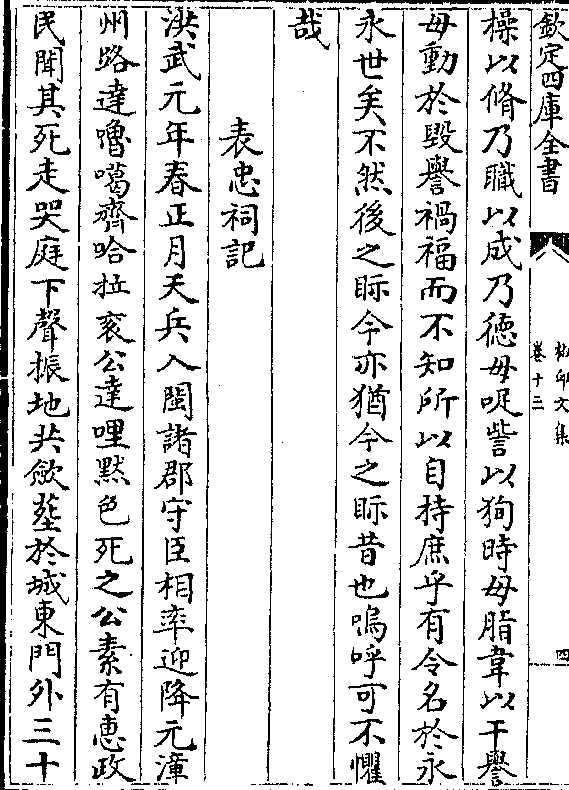 欽定四庫全書
卷十三
四
操以脩乃職以成乃徳毋呢訾以狥時毋脂韋以干譽
毋動於毁譽禍福而不知所以自持庶乎有令名於永
永世矣不然後之眎今亦猶今之眎昔也嗚呼可不懼
哉
表忠祠記
洪武元年春正月天兵入閩諸郡守臣相率迎降元漳
州路達嚕噶齊哈拉衮公達哩黙色死之公素有惠政
民聞其死走哭庭下聲振地共斂塟於城東門外三十